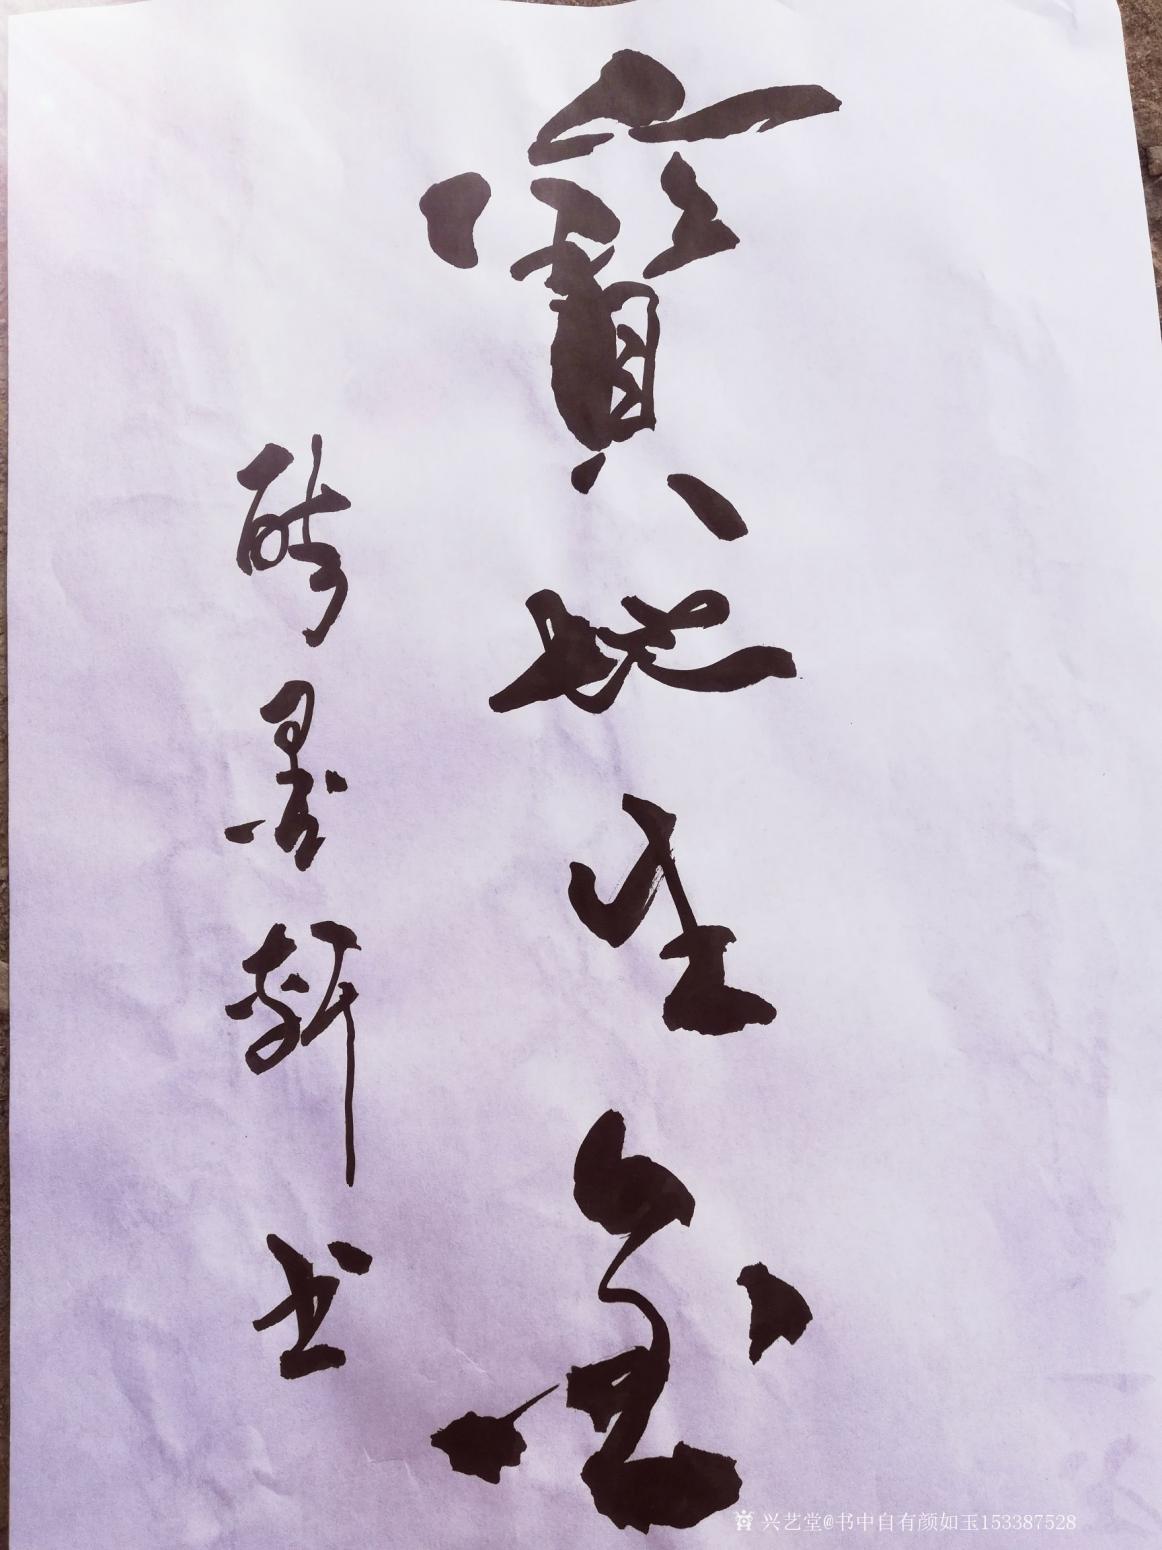 寶地生金
醉墨軒书
兴艺堂@书中自有颜如玉153387528